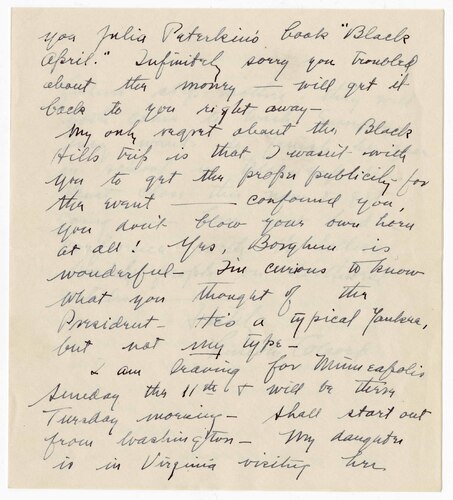 you Julia Peterkin's book "Black
April." Infinitely sorry you troubled
about the money — will get it
back to you right away—
My only regret about the Black
Hills trip is that I wasn't with
you to get the proper publicity for
the event — confound you,
you don't blow your own horn
at all! Yes, Borghum is
wonderful— I'm curious to know
what you thought of the
President— He's a typical Yankee,
but not my type—
I am leaving for Minneapolis
Sunday the 11th & will be there
Tuesday morning— Shall start out
from Washington— My daughter
is in Virginia visiting her